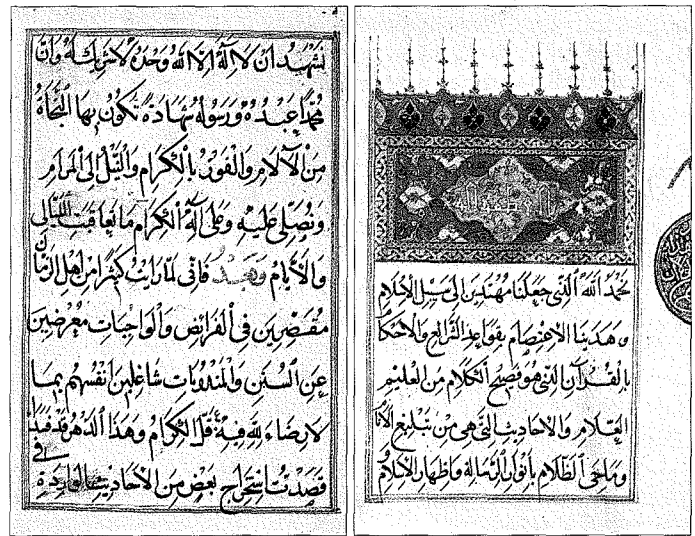 نحمد الله الذي جعلنا مهتدين الى سبيل الاسلام
وهدينا الاعتصام بقواعد الشرايع والاحكا
بالقرآن الذي هو فصيح الكلام من العليم
العلام والاحاديث التي هي من تبليغ
وماحي الظلام بانوار الرسالة واظهار الاسلام
نشهد ان لا اله الا الله وحده لا شريك له وان
محمدا عبده ورسوله شهادة تكون بها النجاة
من الآلام والفوز بالاكرام والنيل الى المرام
ونصلي عليه وعلى آله الكرام ما تعاقبت الليالي
والايام وبعد فاني لما رايت كثيرا من اهل الزمان
مقصرين في الفرائض والواجبات معرضين
عن السنن والمندوبات شاغلين انفسهم بما
لا رضاء لله فيه قل الكرام وهذا الدهر قد فسد
قصدت استخراج بعض من الاحاديث الواردة
في